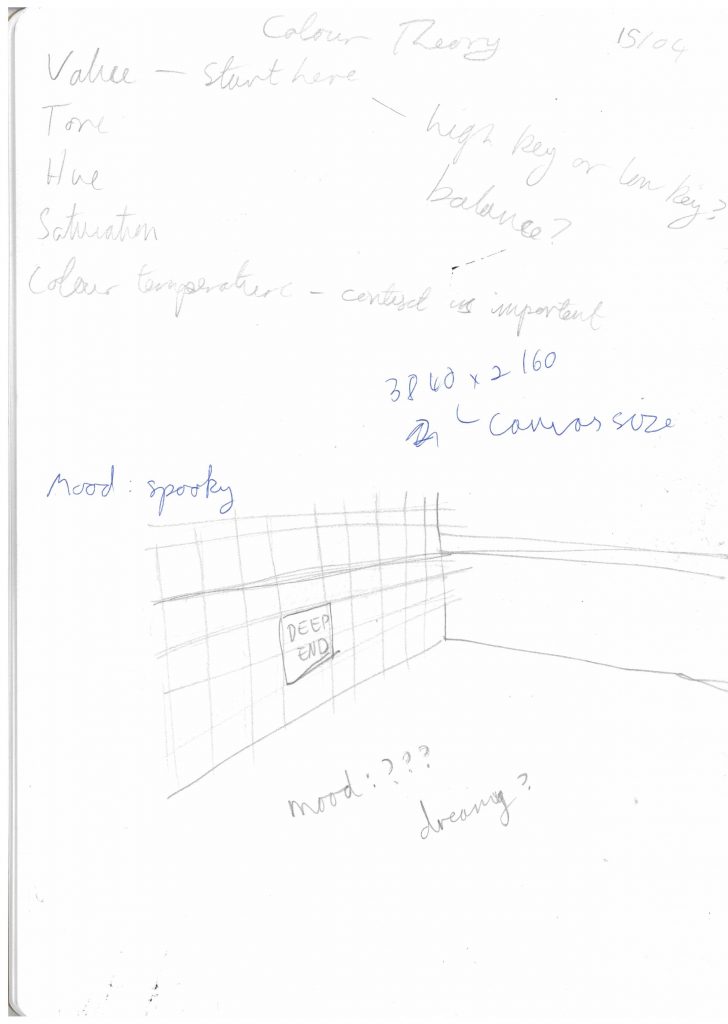 Colour Theory 15/04
Value — start here
Tone
high key or low key?
Hue
balance?
Saturation
Colour temperature – contrast is important
3840 x 2160
canvas size
Mood: spooky
DEEP
END
mood:???
dreamy?